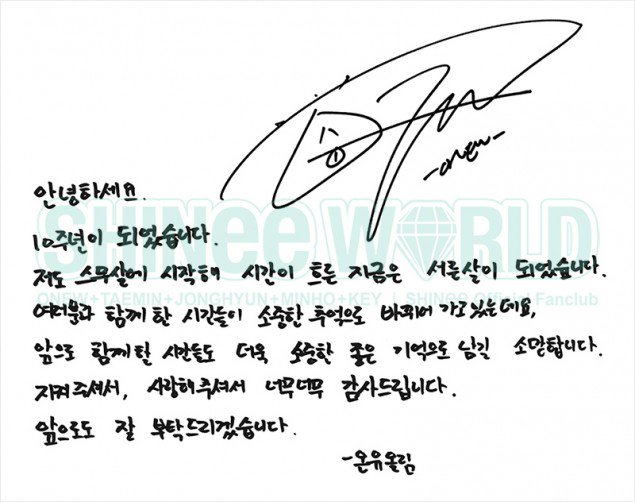 -onew-
안녕하세요.
SHINee WORLD
10주년이 되었습니다.
저도 스무살에 시작해 시간이 흐른 지금은 서른살이 되었습니다.
ONEW+TAEMIN+JONGHYUN+MINHO+KEY | SHINee Official Fanclub
여러분과 함께 한 시간들이 소중한 추억으로 바뀌어 가고 있는데요,
앞으로 함께할 시간들도 더욱 소중한 좋은 기억으로 남길 소망합니다.
지켜주셔서, 사랑해주셔서 너무너무 감사드립니다.
앞으로도 잘 부탁드리겠습니다.
-온유올림